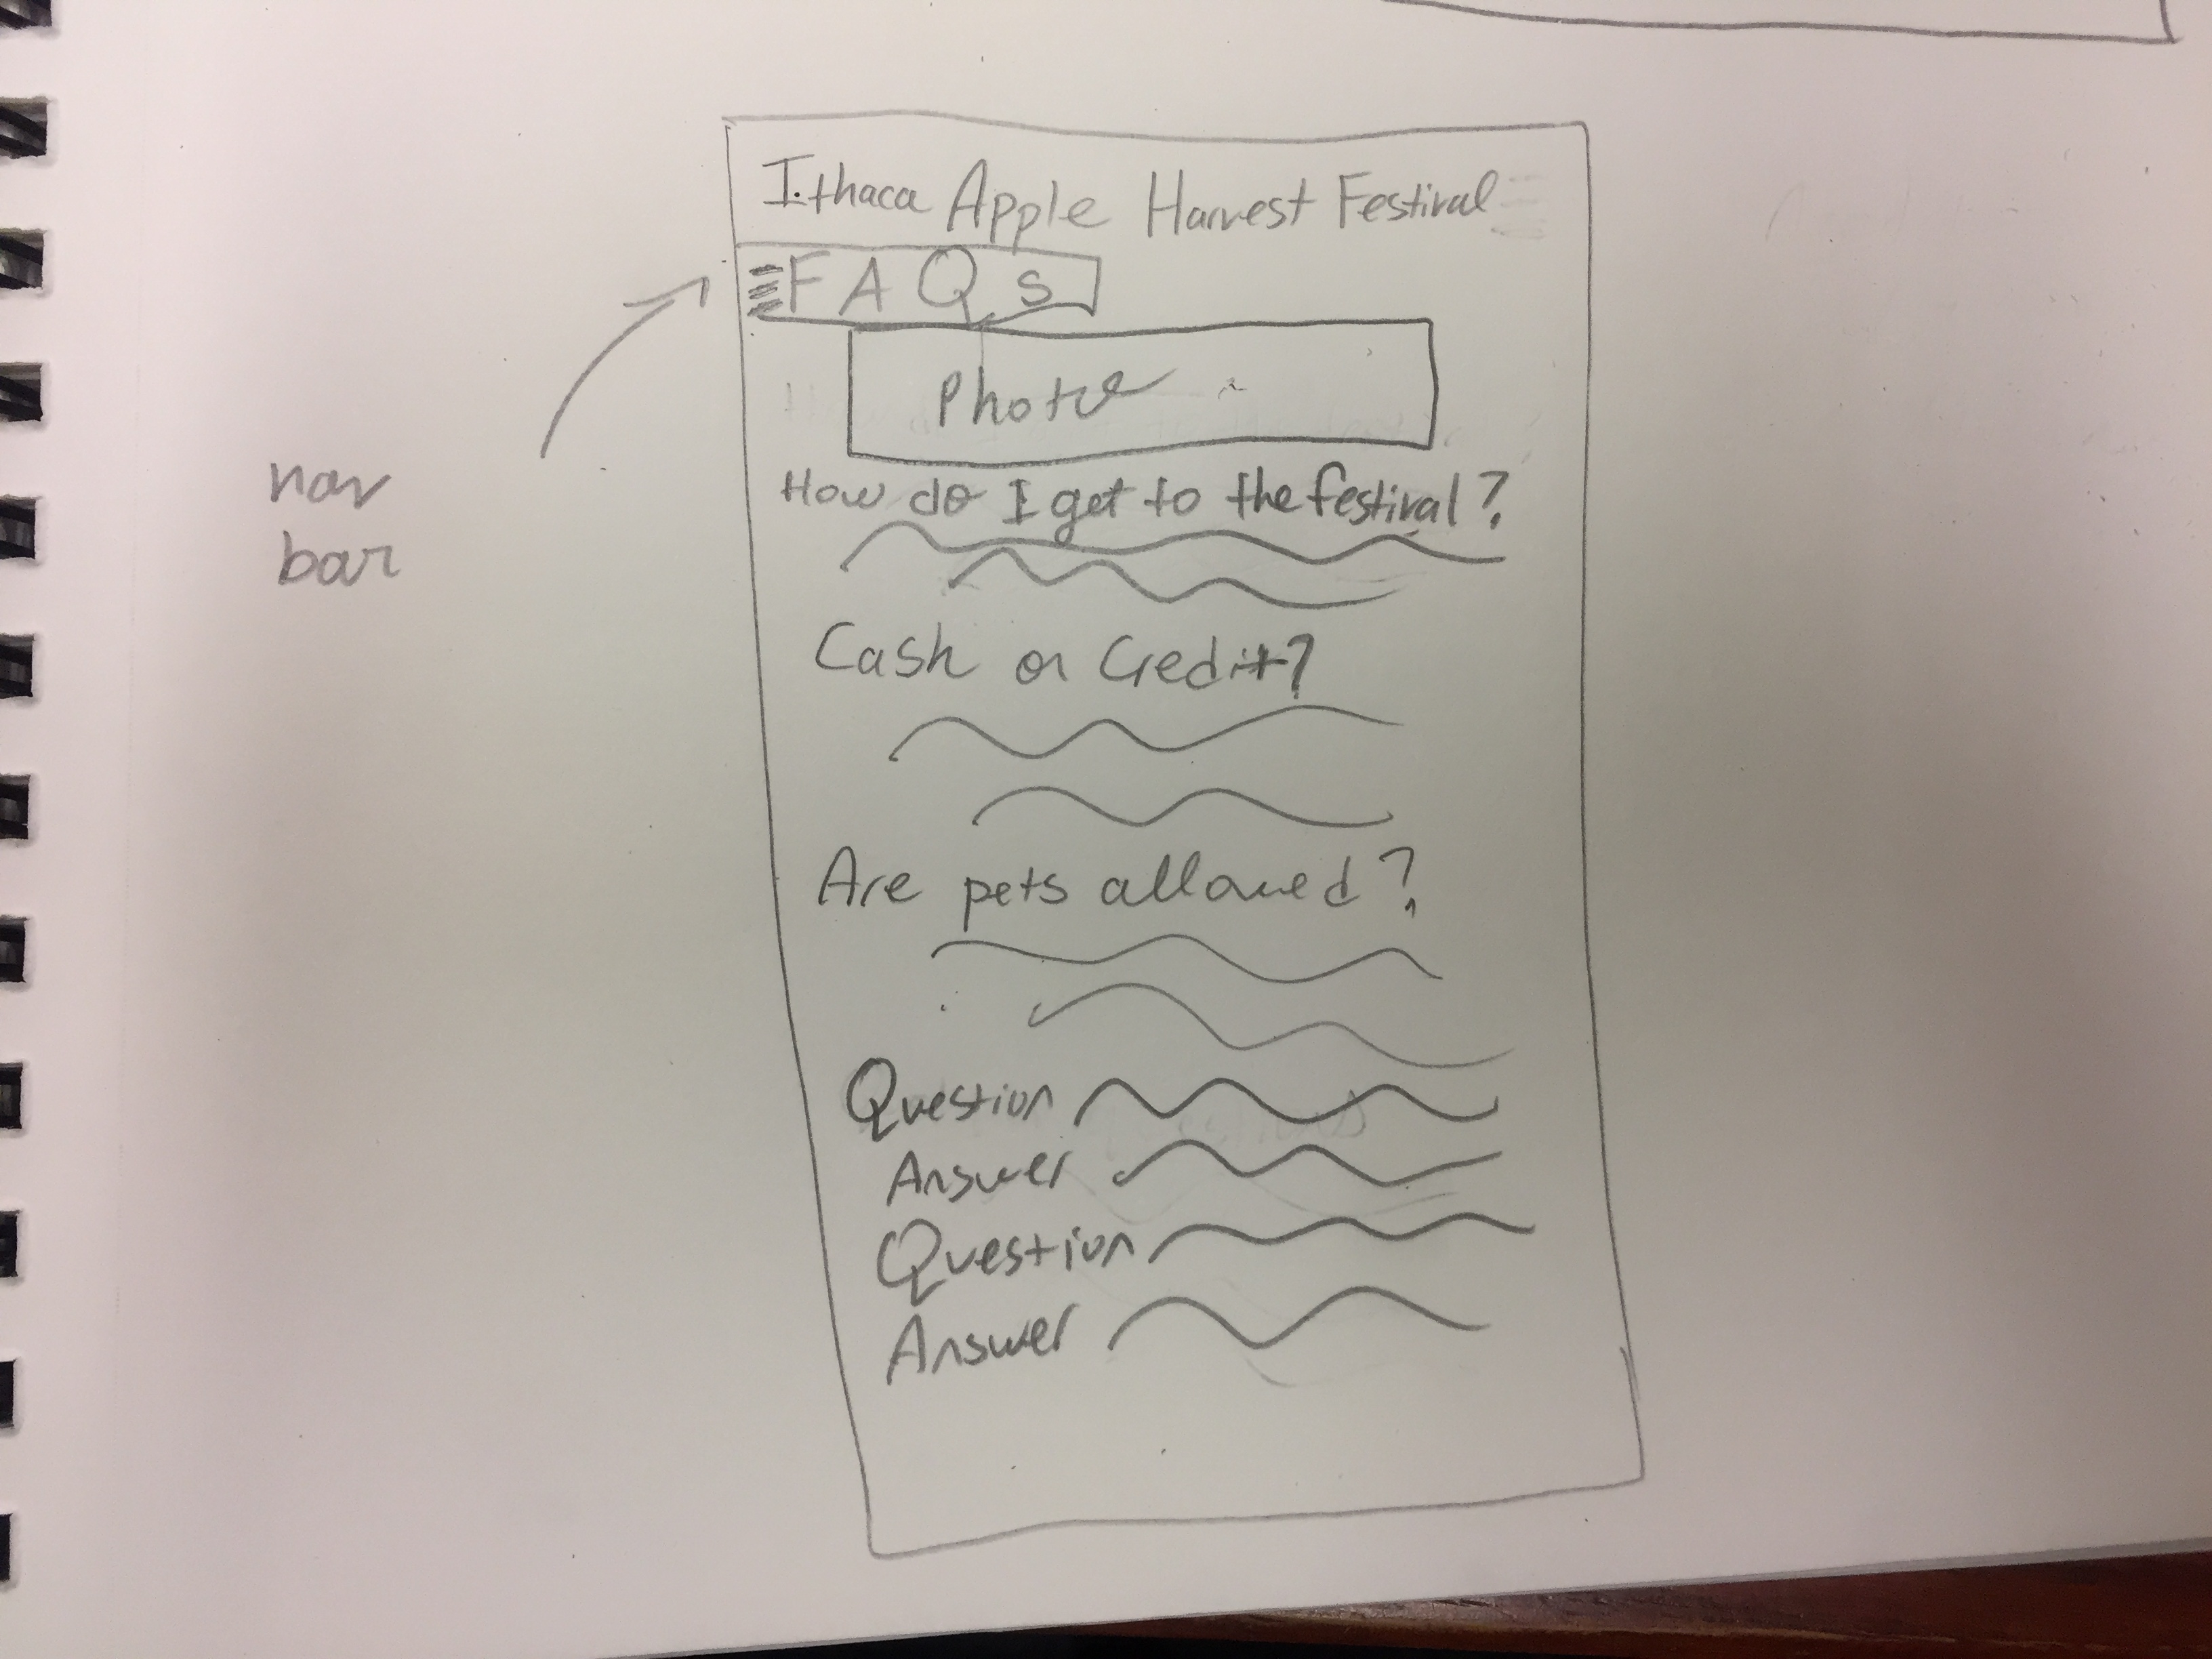 Ithaca Apple Harvest Festival
FAQs
Photo
nav
bar
How do I get to the festival?
Cash or Credit?
Are pets allowed?
Question
Answer
Question
Answer